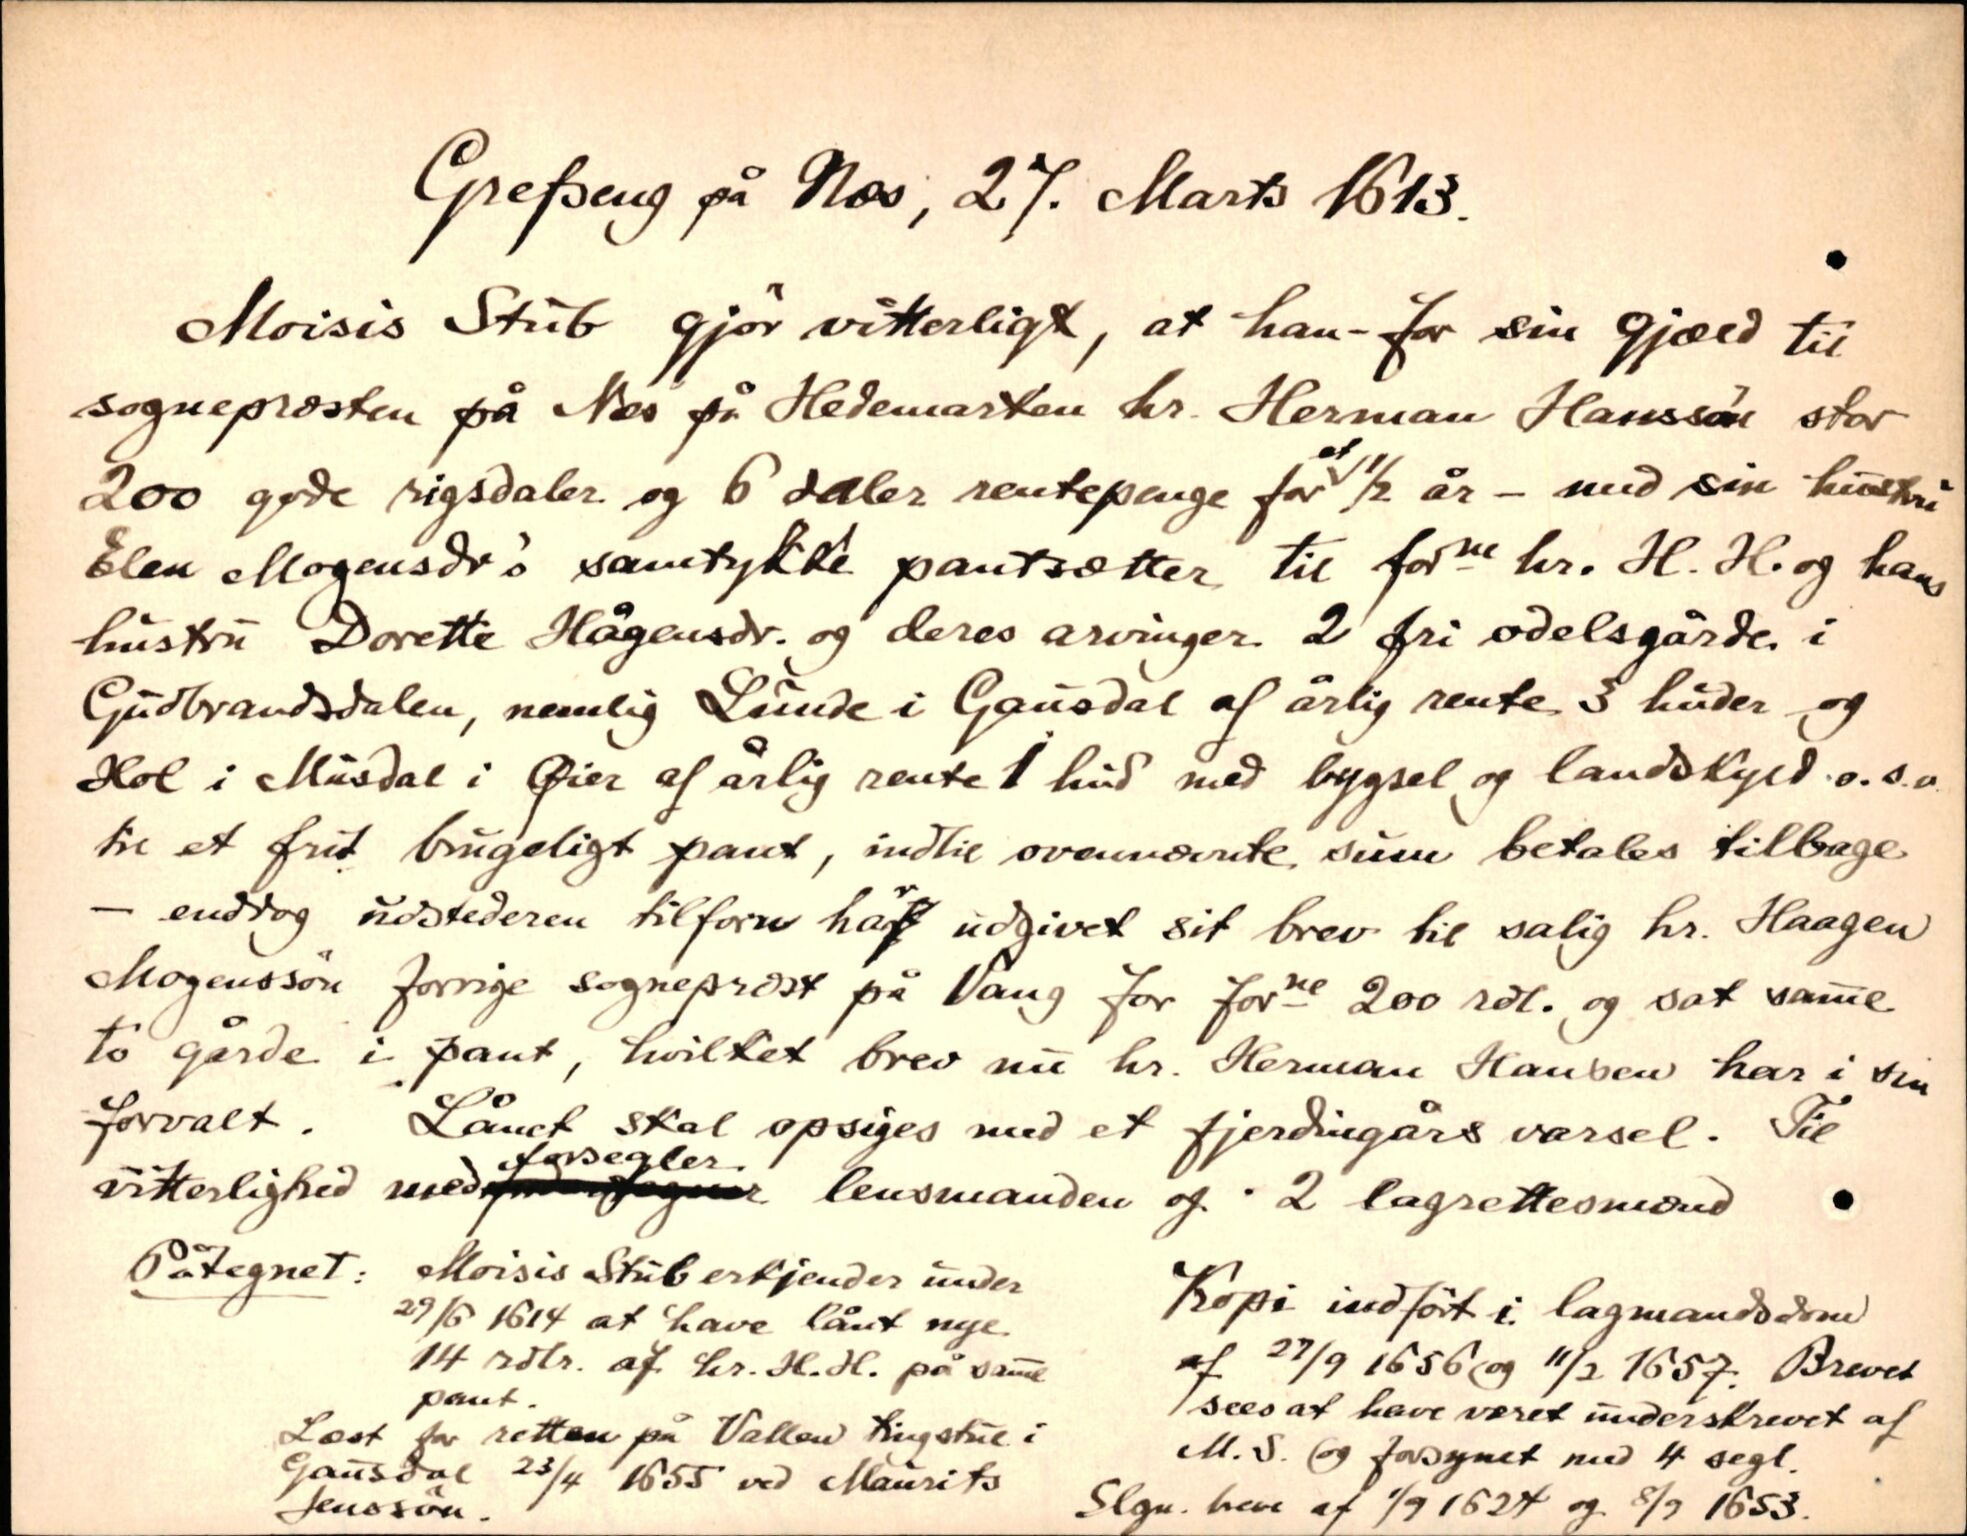 Grefseng på Næs, 27. Marts 1613.
Moisis Stub gjør vitterligt, at han - for sin gjæld til
sognepræsten på Næs på Hedemarken hr. Herman Hanssön stor
200 gode rigsdaler og 6 daler rentepenge for et 1/2 år - med sin hustru
Elen Mogensdr's samtykke pantsætter til forne hr. H. H. og hans
hustru Dorette Hågensdr. og deres arvinger 2 fri odelsgårde i
Gudbrandsdalen, nemlig Lunde i Gausdal af årlig rente 3 huder og
Hol i Musdal i Øier af årlig rente 1 hud med bygsel og landskyld o.s.v.
til et frit brugeligt pant, indtil ovennævnte sum betales tilbage
- enddog udstederen tilforn har udgivet sit brev til salig hr. Haagen
Mogenssön forrige sognepræst på Vang for forne 200 rdl. og sat samme
to gårde i pant, hvilket brev nu hr. Herman Hansen har i sin
forvalt. Lånet skal opsiges med et fjerdingårs varsel. Til
vitterlighed med forsegler lensmanden og 2 lagrettesmænd
Påtegnet: Moisis Stub erkjender under
29/6 1614 at have lånt nye
14 rdlr. af hr. H. H. på samme
pant.
Læst for retten på Vallen tingstue i
Gausdal 23/4 1655 ved Maurits
Jenssön.
Kopi indført i lagmandsdom
af 27/9 1656 og 11/2 1657. Brevet
sees at have været underskrevet af
M. S. og forsynet med 4 segl.
Slgn. breve af 1/9 1624 og 8/9 1653.